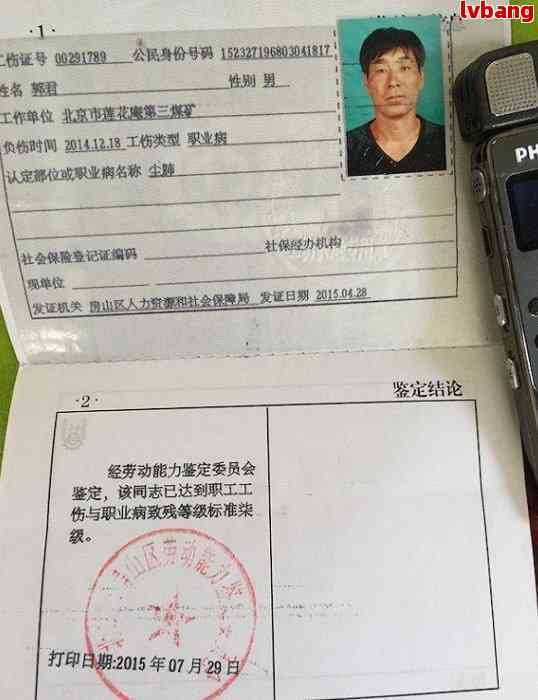 lvbang
·1·
工伤证号 00291789 公民身份号码 152327196803041817
姓名 郭君 性别 男
工作单位 北京市莲花庵第三煤矿
负伤时间 2014.12.18 工伤类型 职业病
认定部位或职业病名称 尘肺
社会保险登记证编码 社保经办机构
现单位
发证机关 房山区人力资源和社会保障局 发证日期 2015.04.28
PH
·2· 鉴定结论
经劳动能力鉴定委员会
鉴定，该同志已达到职工工
伤与职业病致残等级标准柒
级。
山区劳动能力鉴
打印日期:2015 年 07 月 29 日